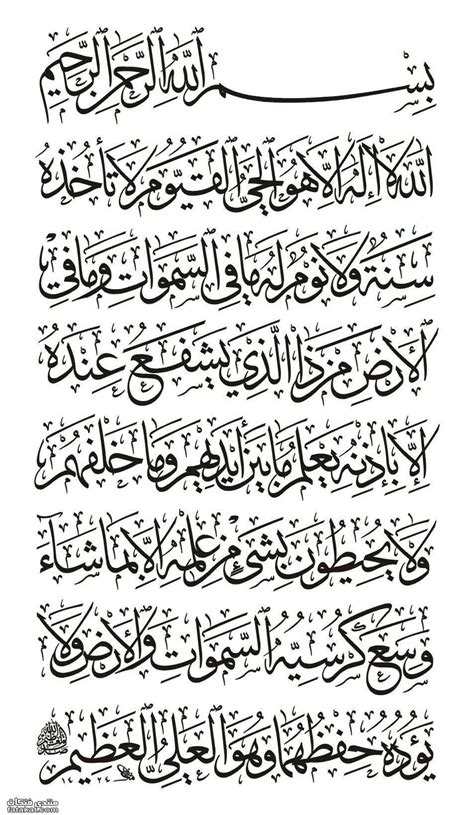 بِسْمِ ٱللَّهِ ٱلرَّحْمَٰنِ ٱلرَّحِيمِ
ٱللَّهُ لَا إِلَٰهَ إِلَّا هُوَ ٱلْحَيُّ ٱلْقَيُّومُ لَا تَأْخُذُهُ
سِنَةٌ وَلَا نَوْمٌ لَهُ مَا فِي ٱلسَّمَوَاتِ وَمَا فِي
ٱلْأَرْضِ مَنْ ذَا ٱلَّذِي يَشْفَعُ عِنْدَهُ
إِلَّا بِإِذْنِهِ يَعْلَمُ مَا بَيْنَ أَيْدِيهِمْ وَمَا خَلْفَهُمْ
وَلَا يُحِيطُونَ بِشَيْءٍ مِنْ عِلْمِهِ إِلَّا بِمَا شَآءَ
وَسِعَ كُرْسِيُّهُ ٱلسَّمَوَاتِ وَٱلْأَرْضَ وَلَا
يَؤُدُهُ حِفْظُهُمَا وَهُوَ ٱلْعَلِيُّ ٱلْعَظِيمُ
منتدى فتكات
fatakat.com